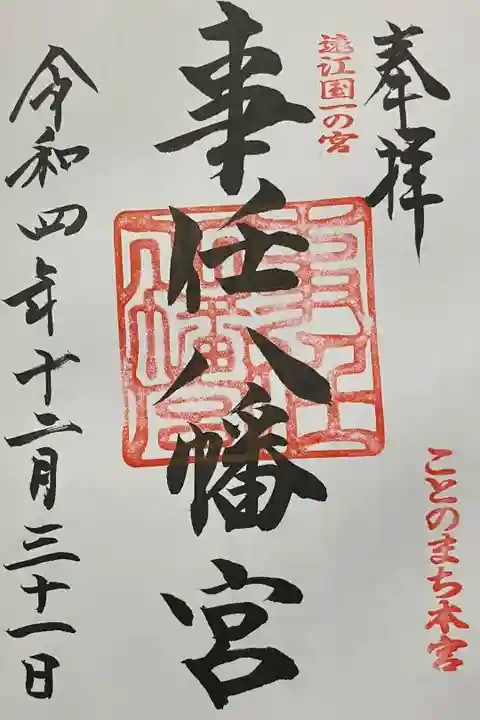 奉拝
遠江国一の宮
ことのまち本宮
事任八幡宮
事任八幡宮
令和四年十二月三十一日